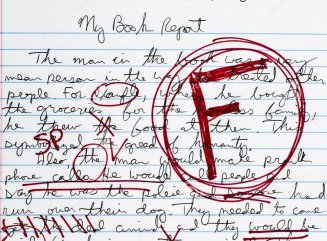 My Book Report
The man in the book was a very
mean person in the way he treated other
people For example, where he bought
the groceries for the
he threw the food at them This
SP
symbolized the greed of humanity.
Also the man would make prank
phone calls He would call people and
say he was the police and someone had
run over their dog They needed to come
dead animal and they would be
F